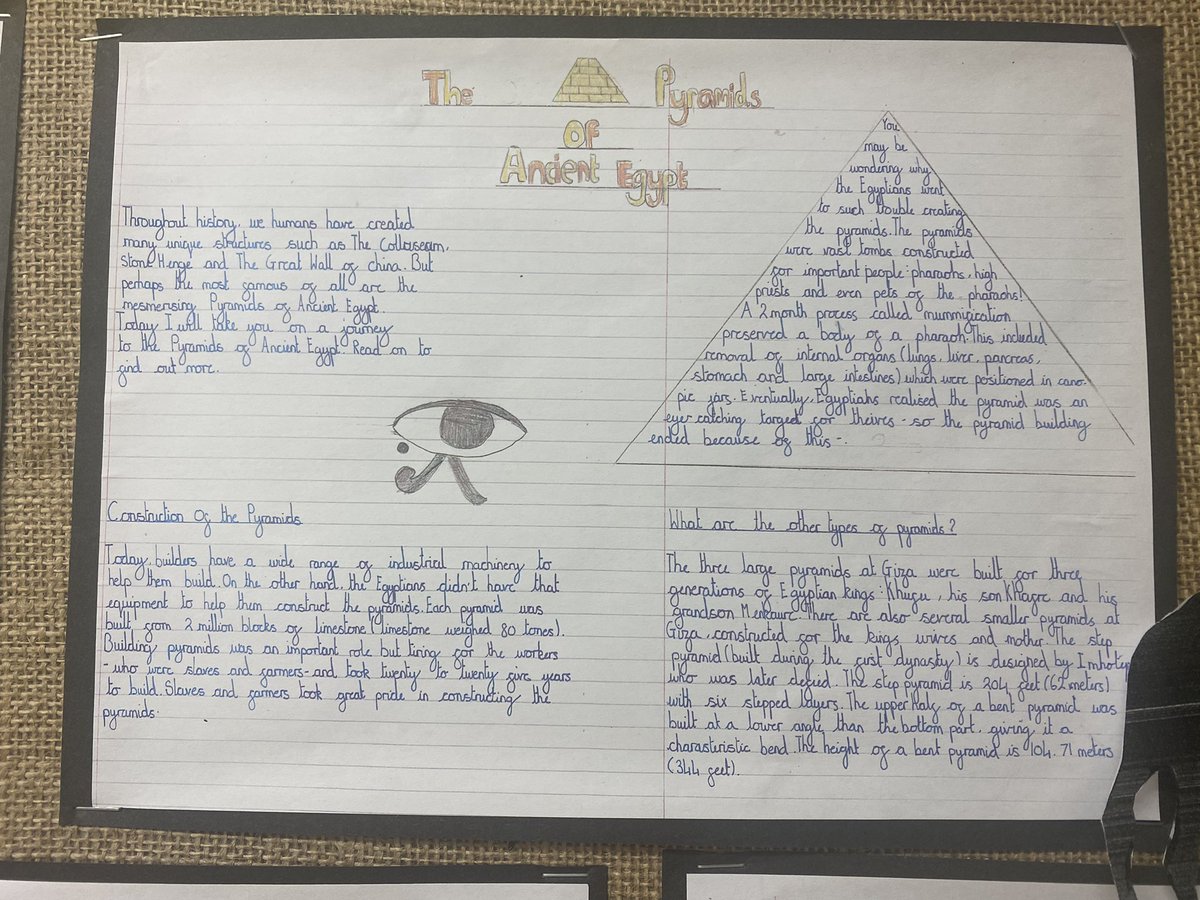 The Pyramids
Of
Ancient Egypt
Throughout history, we humans have created
many unique structures such as The Collouseam,
Stone Henge and The Great Wall of china. But
perhaps the most famous of all are the
mesmerising Pyramids of Ancient Egypt.
Today I will take you on a journey
to the Pyramids of Ancient Egypt. Read on to
find out more.
You
may be
wondering why
the Egyptians went
to such trouble creating
the pyramids. The pyramids
were vast tombs constructed
for important people: pharaohs, high
priests and even pets of the pharaohs!
A 2 month process called mummification
preserved a body of a pharaoh. This included
removal of internal organs (lungs, liver, pancreas,
stomach and large intestines) which were positioned in cano-
pic jars. Eventually, Egyptians realised the pyramid was an
eye-catching targed for theives - so the pyramid building
ended because of this -.
Construction Of the Pyramids
Today, builders have a wide range of industrial machinery to
help them build. On the other hand, the Egyptians didn't have that
equipment to help them construct the pyramids. Each pyramid was
built from 2 million blocks of limestone (limestone weighed 80 tones).
Building pyramids was an important role but tiring for the workers
- who were slaves and farmers- and took twenty to twenty five years
to build. Slaves and farmers took great pride in constructing the
pyramids.
What are the other types of pyramids?
The three large pyramids at Giza were built for three
generations of Egyptian kings: Khufu, his son Khafre and his
grandson Menkaure. There are also several smaller pyramids at
Giza, constructed for the kings wives and mother. The step
pyramid (built during the first dynasty) is designed by Imhotep
who was later deified. The step pyramid is 204 feet (62 meters)
with six stepped layers. The upper half of a bent pyramid was
built at a lower angle than the bottom part, giving it a
charasteristic bend. The height of a bent pyramid is 104.71 meters
(344 feet).